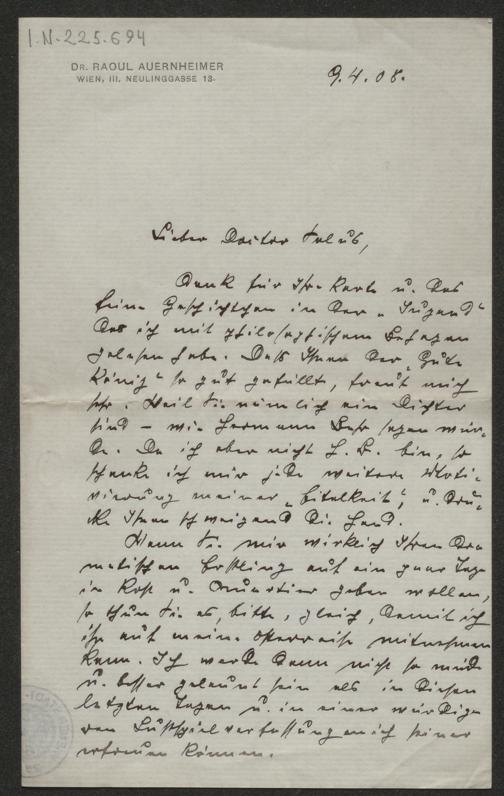 I.N. 225.694
DR. RAOUL AUERNHEIMER
WIEN, III. NEULINGGASSE 13.
9.4.08.
Lieber Doctor
Dank für Ihre Karte u. das
feine Geschichtchen in der „Jugend“
das ich mit philosophischem Behagen
gelesen habe. Daß Ihnen der „Gute
König“ so gut gefällt, freut mich
sehr. Weil Sie nämlich ein Dichter
sind – wie Hermann Bahr sagen wür-
de. Da ich aber nicht H. B. bin, so
schenke ich mir jede weitere Moti-
vierung meiner „Eitelkeit“, u. drü-
cke Ihnen schweigend die Hand.
Wenn Sie mir wirklich Ihren dra-
matischen Erstling auf ein paar Tage
in Kost u. Quartier geben wollen,
so thun Sie es, bitte, gleich, damit ich
ihn auf meine Osterreise mitnehmen
kann. Ich werde dann nicht so müde
u. besser gelaunt sein als in diesen
letzten Tagen u. in einer würdige-
ren Lustspielverfassung mich seiner
erfreuen können.